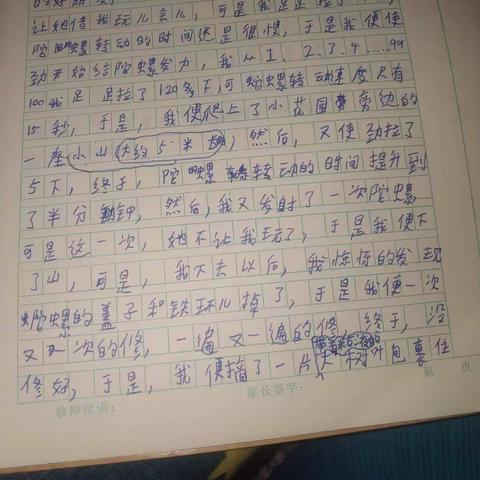 让她借我玩儿会儿，可是我足足拉了
陀螺转动的时间还是很慢，于是我便使
劲开始给陀螺发力，我从1、2、3、4……99
100我足足拉了120多下，可陀螺转动速度只有
15秒，于是，我便爬上了小花园旁边的
一座小山（大约5米），然后，又使劲拉了
5下，终于，陀螺转动的时间提升到
了半分钟，然后，我又发射了一次陀螺
可是这一次，她不让我玩了，于是我便下
了山，可是，我下去以后，我惊讶的发现
陀螺的盖子和铁环儿掉了，于是我便一次
又一次的修，一遍又一遍的修，终于，没
修好，于是，我便摘了一片大叶包裹住
教师批语：
家长签字：
第 页